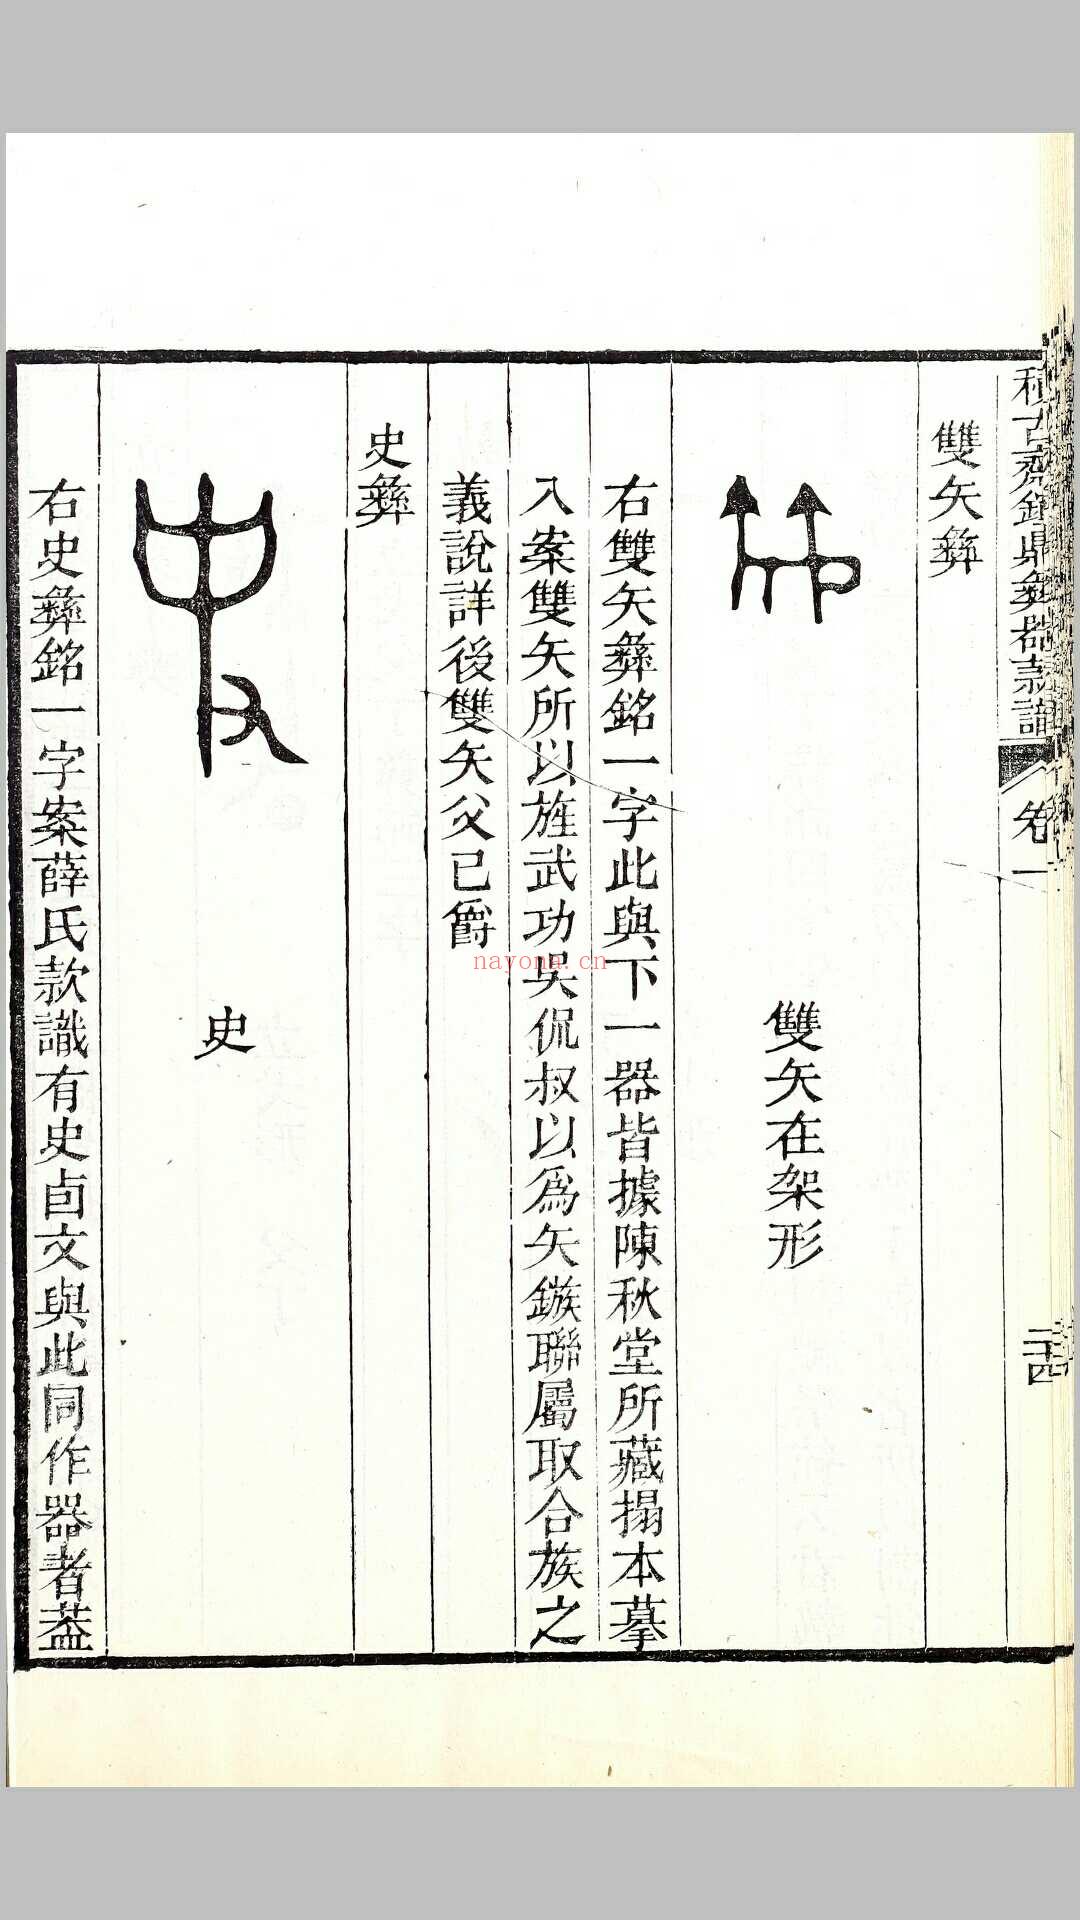 積古齋鐘鼎彝器款識
卷一
二十四
雙矢彝
雙矢在架形
右雙矢彝銘一字此與下一器皆據陳秋堂所藏搨本摹
入案雙矢所以旌武功吳侃叔以爲矢鏃聯屬取合族之
義說詳後雙矢父已爵
史彝
史
右史彝銘一字案薛氏款識有史卣文與此同作器者葢
nayona.cn